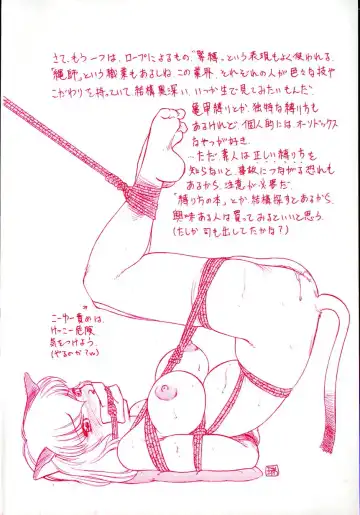 さて、もう一つは、ロープによるもの。"緊縛"という表現もよく使われる。
「縄師」という職業もあるしね。この業界、それぞれの人が色々な技や
こだわりを持っていて、結構奥深い。いつかまで見てみたいもんだ。
亀甲縛りとか、独特な縛り方も
あるけれど、個人的には、オーソドックス
なやつが好き。
…ただ、素人は正しい縛り方を
知らないと、事故につながる恐れも
あるから、注意が必要だ。
"縛り方の本"とか、結構探すとあるから、
興味ある人は買ってみるといいと思う。
(たしか 可も出してたかな？)
こーゆー責めは、
けっこー危険
気をつけよう。
(やるのか？w)